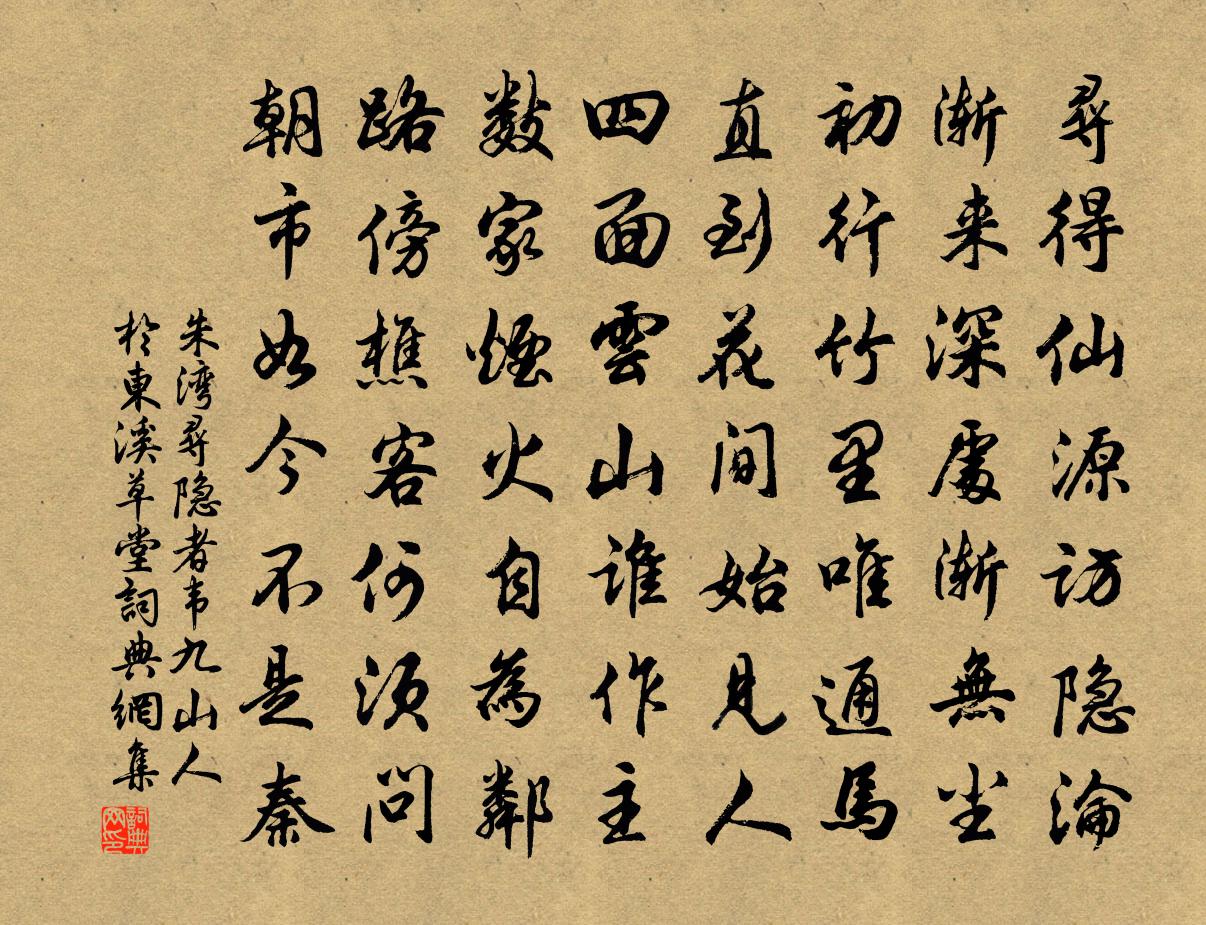 尋得仙源访隐淪
渐来深處渐無尘
初行竹里唯通馬
直到花间始見人
四面雲山谁作主
数家煙火自為鄰
路傍樵客何须问
朝市如今不是秦
朱湾尋隐者韦九山人
於東溪草堂詞典網集
詞典網印